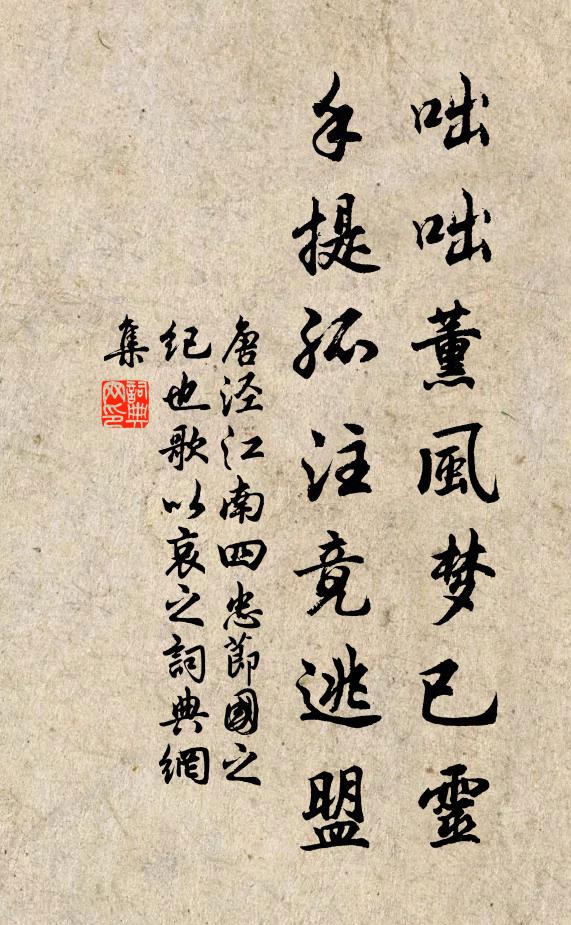 咄咄薰風梦已靈
手提孤注竟逃盟
唐泾江南四忠節國之
纪也歌以哀之詞典網
集
詞典網印